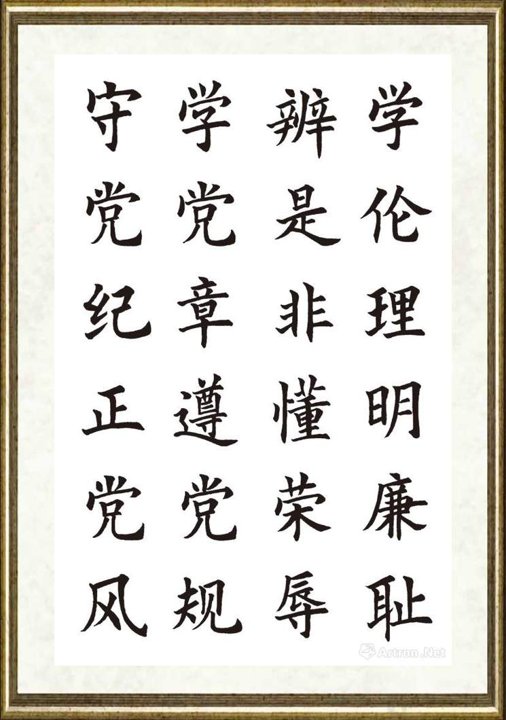 学伦理明廉耻
辨是非懂荣辱
学党章遵党规
守党纪正党风
Artron.Net